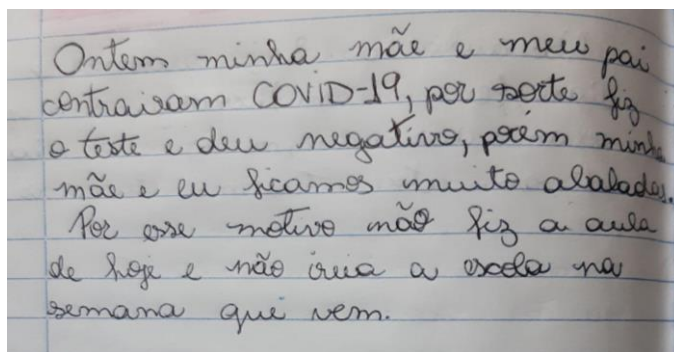 Ontem minha mãe e meu pai
contrairam COVID-19, por sorte fiz
o teste e deu negativo, porém minha
mãe e eu ficamos muito abalados.
Por esse motivo não fiz a aula
de hoje e não irei a escola na
semana que vem.